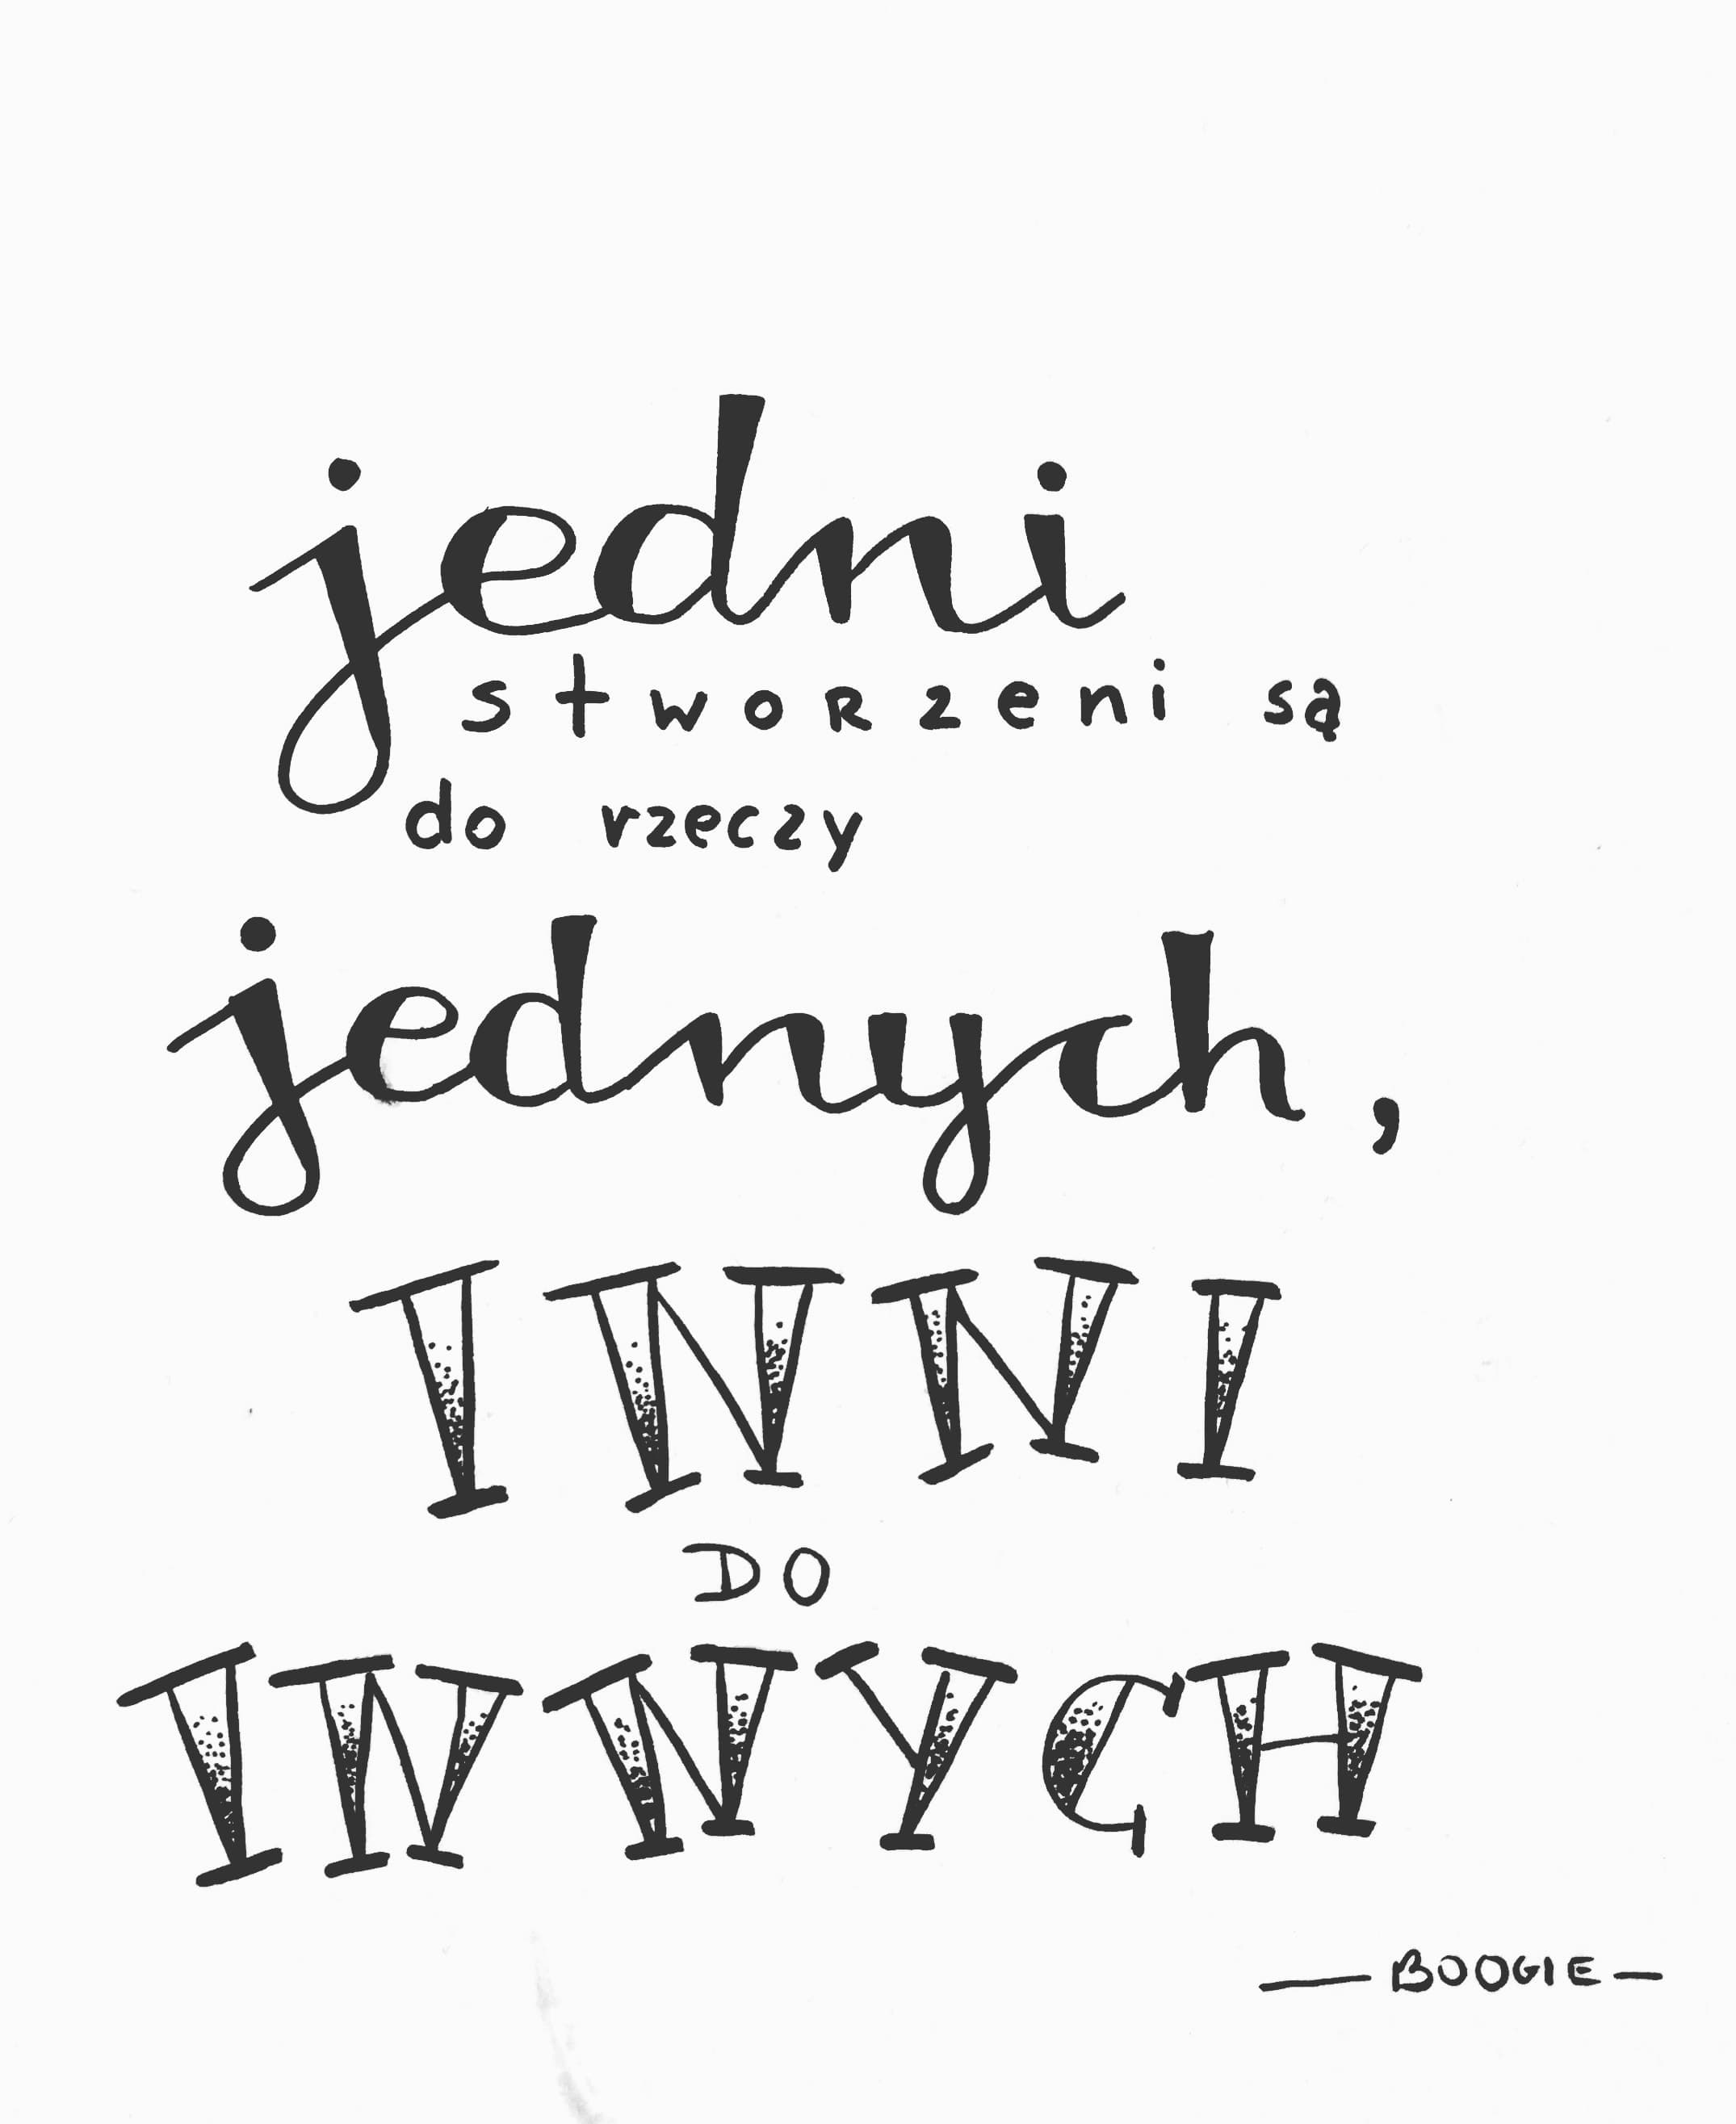 jedni
stworzeni są
do rzęczy
jednych,
INNI
DO
INNYCH
— BOOGIE —